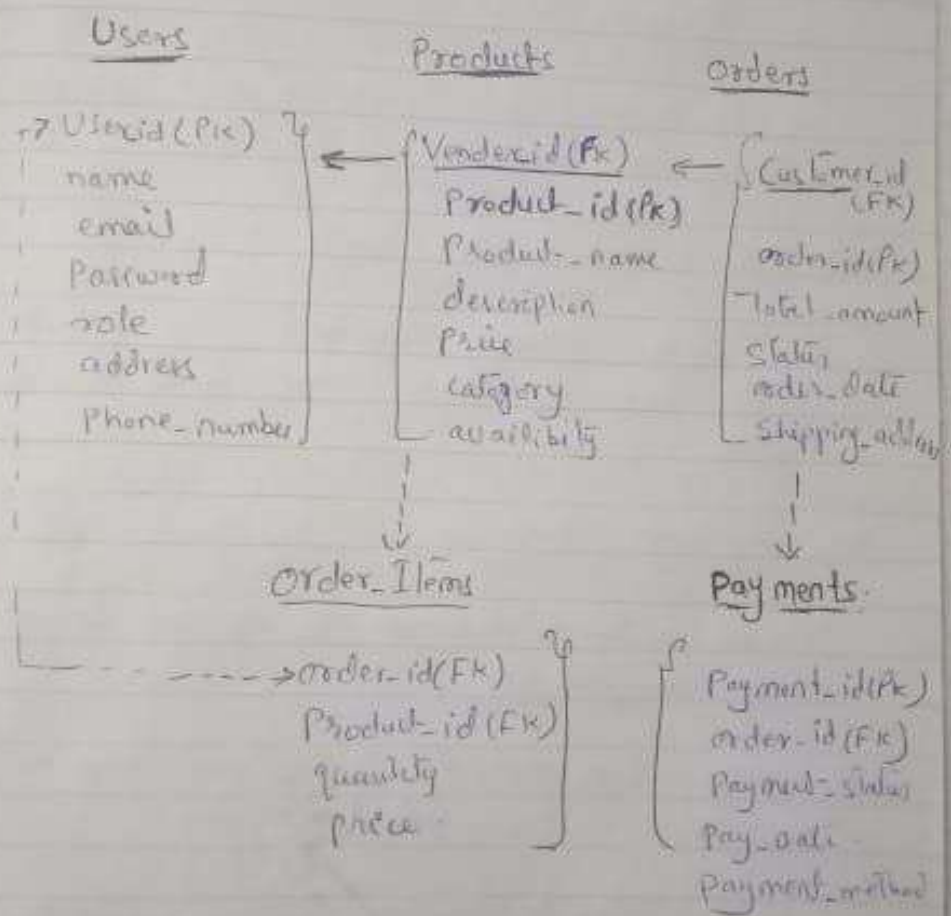 Users
Userid (PK)
name
email
Password
role
address
Phone_number
Products
Vender_id (FK)
Product_id (PK)
Product_name
description
Price
category
availibity
Orders
Customer_id
(FK)
order_id (PK)
Total_amount
Status
order_Date
Shipping_address
Order_Items
order_id (FK)
Product_id (FK)
quantity
price
Payments.
Payment_id (PK)
order_id (FK)
Payment_status
Pay_date
Payment_method